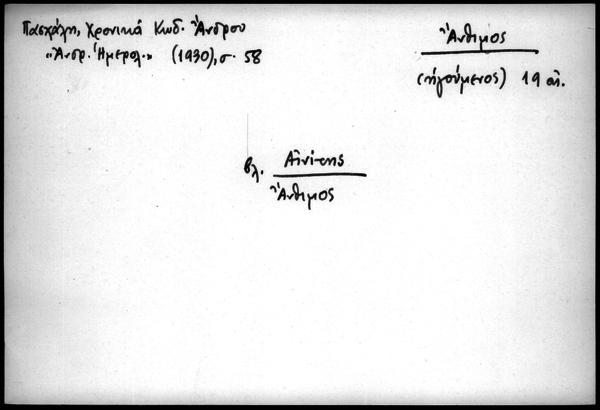 Πασχάλη, Χρονικά Κωδ. Ἄνδρου
«Ἀνδρ. Ἡμερολ.» (1930), σ. 58
Ἄνθιμος
(ἡγούμενος) 19 αἰ.
βλ. Αἰνίτης
Ἄνθιμος